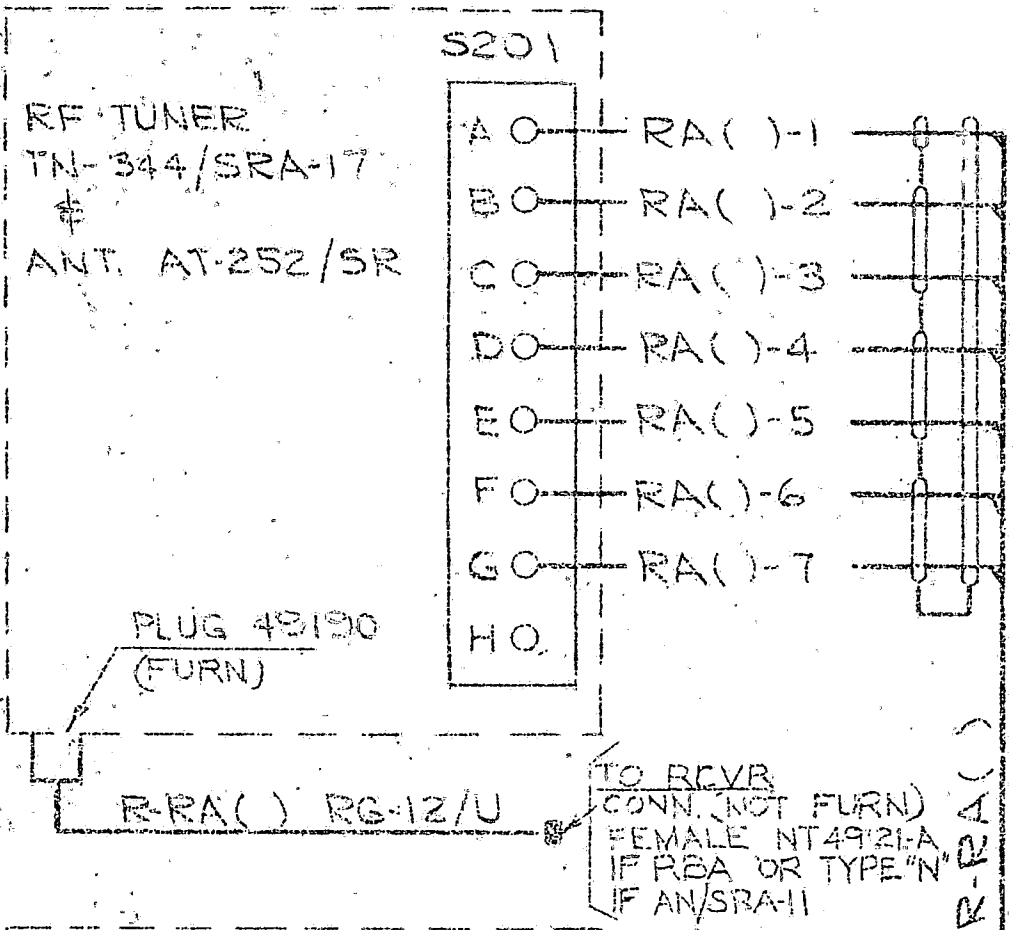 S201
RF TUNER
TN-344/SRA-17
&
ANT. AT-252/SR
A RA( )-1
B RA( )-2
C RA( )-3
D RA( )-4
E RA( )-5
F RA( )-6
G RA( )-7
H
PLUG 49190
(FURN)
R-RA( ) RG-12/U
TO RCVR
CONN. (NOT FURN)
FEMALE NT49121-A
IF RBA OR TYPE "N"
IF AN/SRA-11
R-RA( )